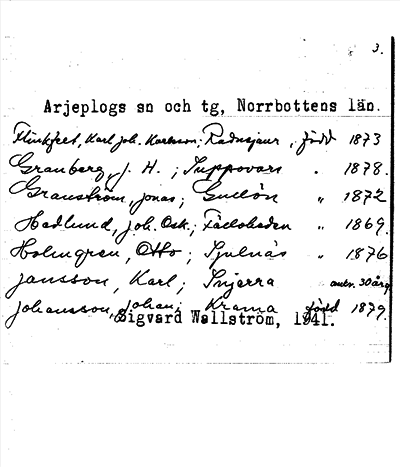 3.
Arjeplogs sn och tg, Norrbottens län.
Karl Joh. Karlsson; Radnejaur, född 1873
Granberg, J. H.; " 1878.
Granström, Jonas; Gullön " 1872
Hedlund, Joh. Osk.; " 1869.
Holmgren, Otto; Sjulnäs " 1876
Jansson, Karl; antr. 30 årg.
Johansson, Johan; Krama född 1879.
Sigvard Wallström, 1941.